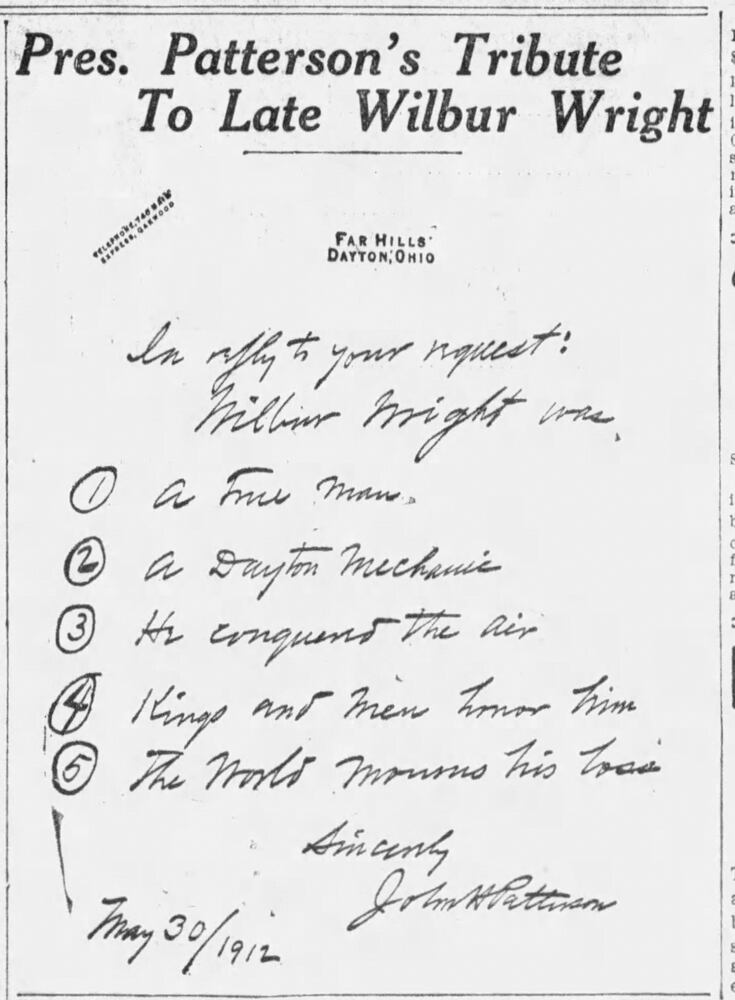 Pres. Patterson's Tribute
To Late Wilbur Wright
TELEPHONE, 740 MAIN
EXPRESS, OAKWOOD
FAR HILLS
DAYTON, OHIO
In reply to your request:
Wilbur Wright was
1 a true man.
2 a Dayton Mechanic
3 He conquered the air
4 Kings and men honor him
5 The World mourns his loss
Sincerely
John H Patterson
May 30/1912